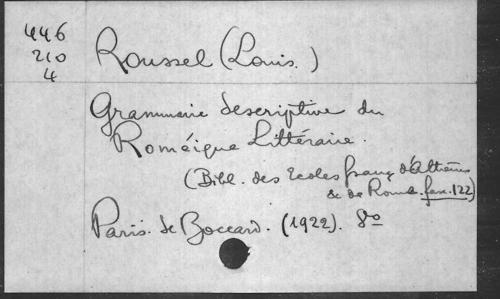 446
210
4
Roussel (Louis.)
Grammaire descriptive du
Roméique Littéraire.
(Bibl. des Ecoles franç d'Athènes
& de Rome. fasc. 122)
Paris. de Boccard. (1922). 8º